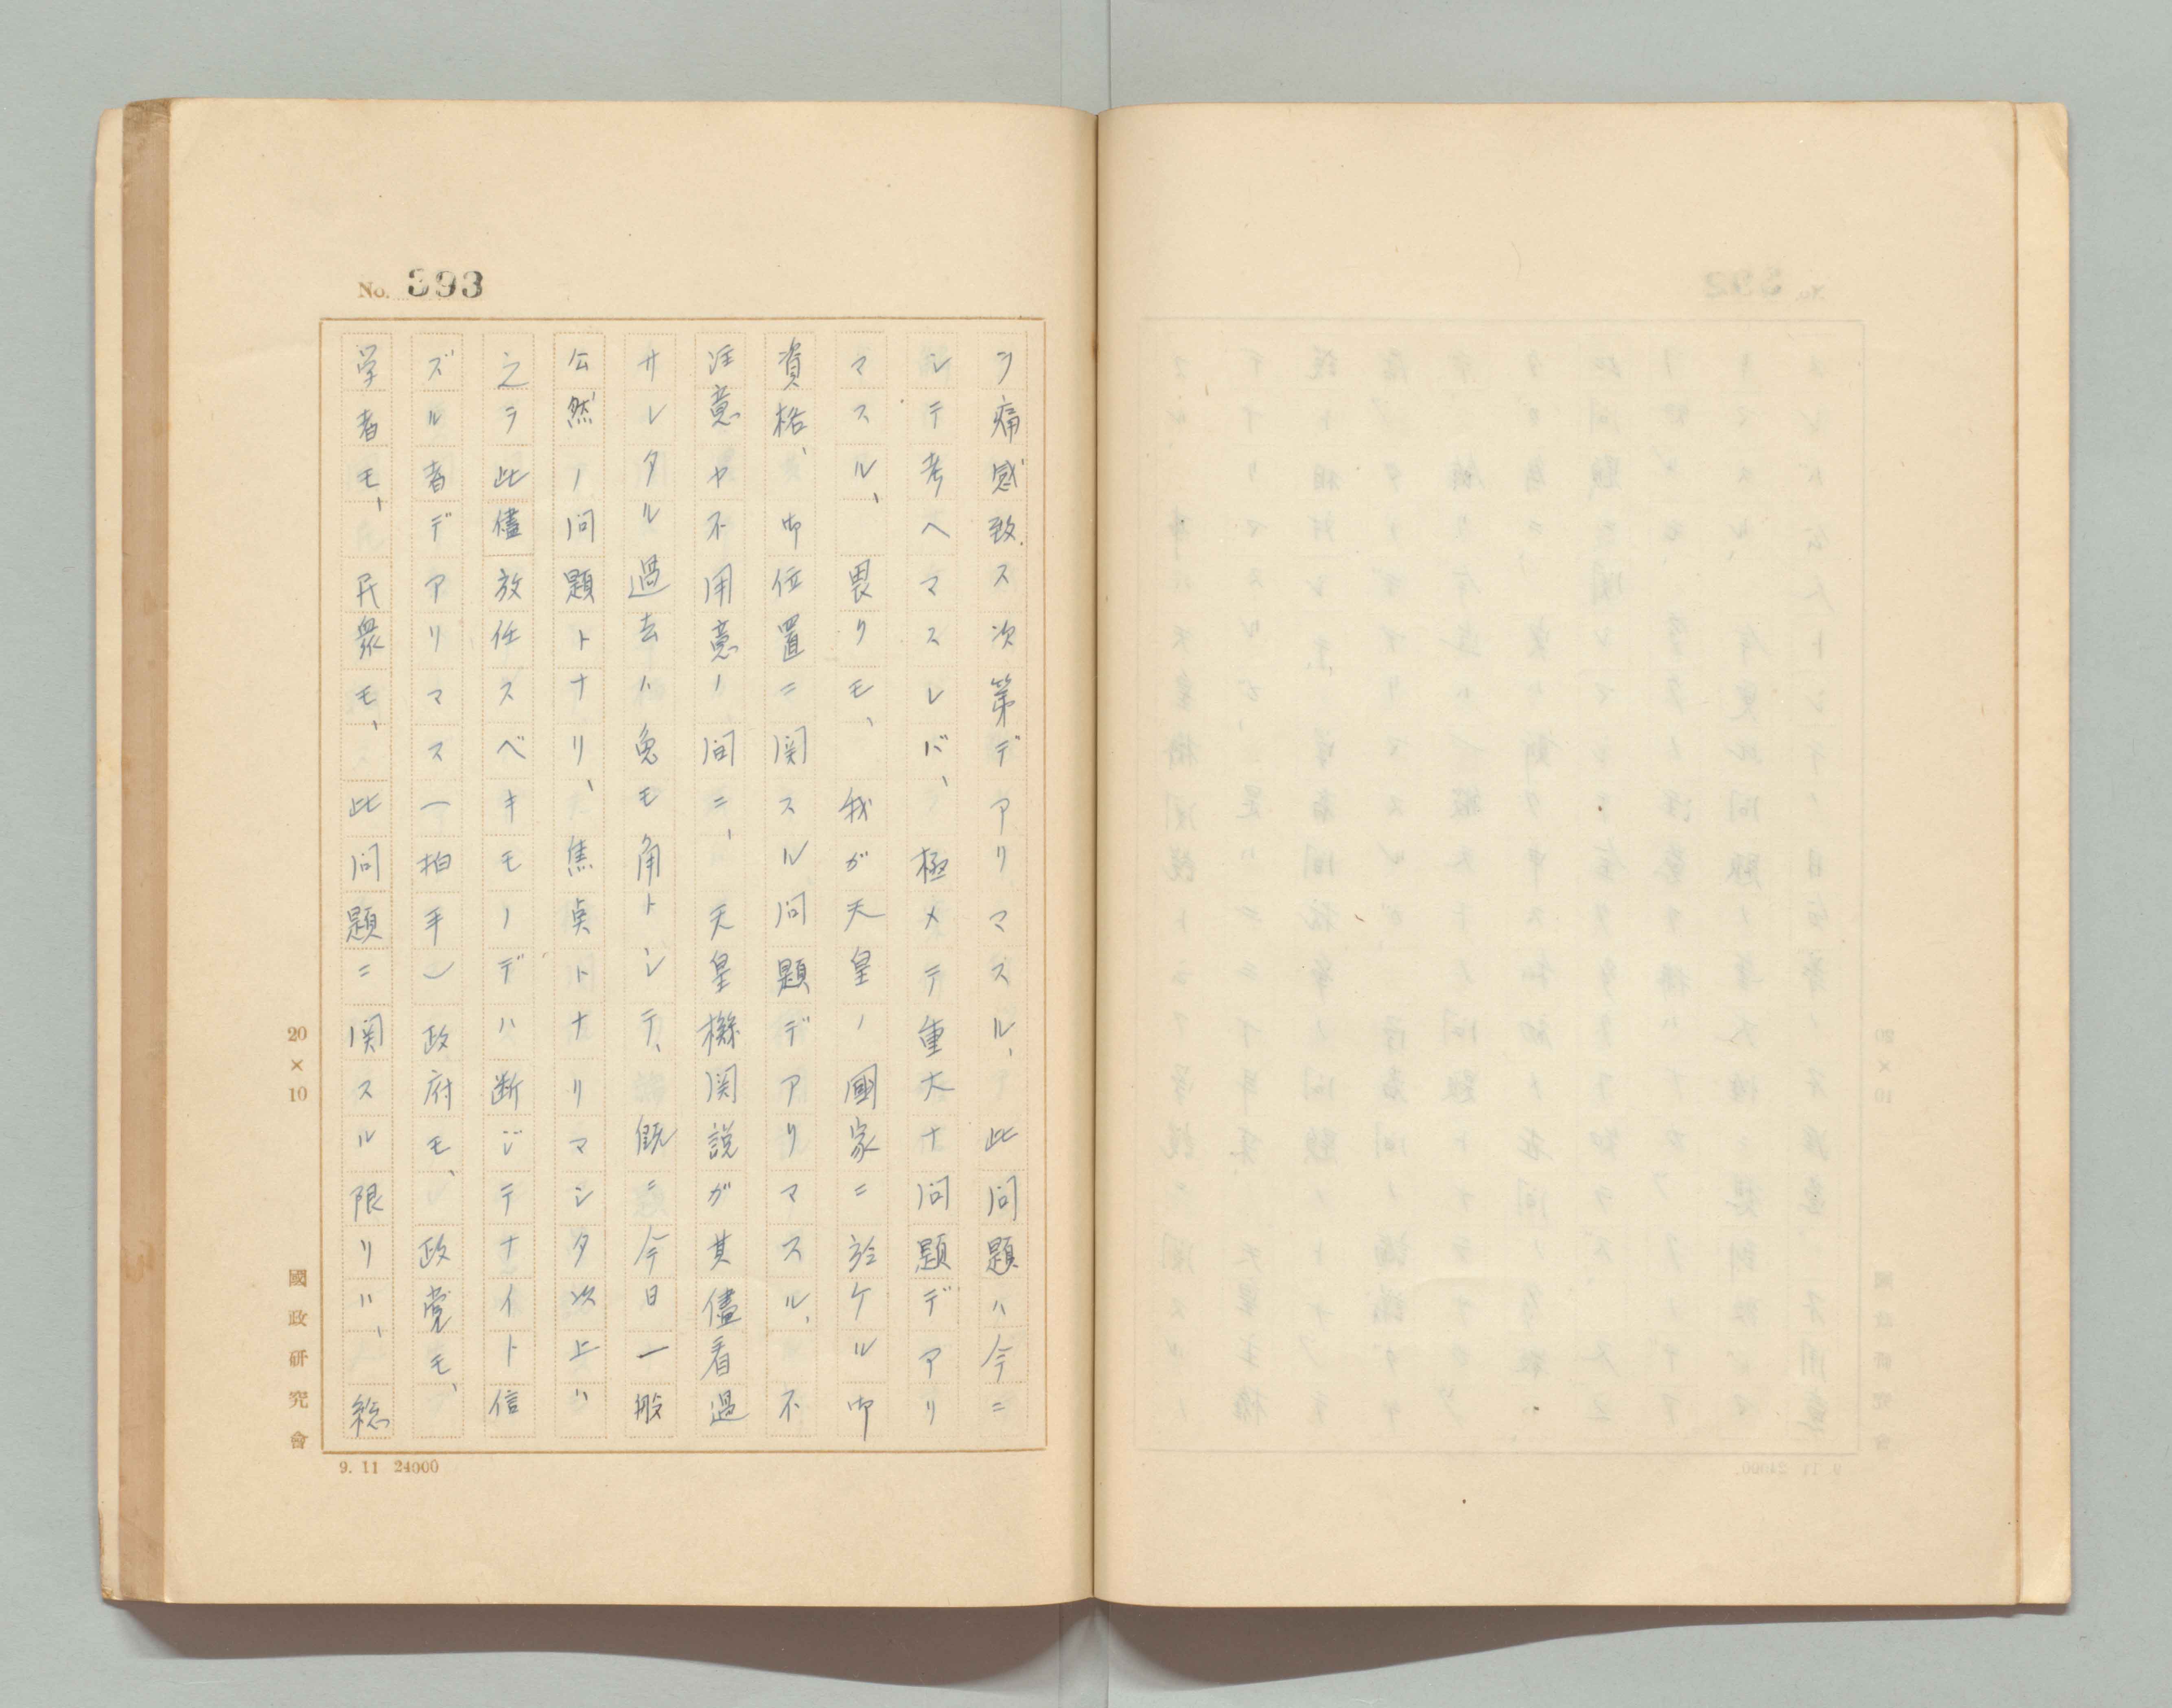 No. 393
ヲ痛感致ス次第デアリマスル、此問題ハ今ニ
シテ考ヘマスレバ、極メテ重大ナ問題デアリ
マスル、畏リモ、我ガ天皇ノ國家ニ於ケル御
資格、御位置ニ関スル問題デアリマスル、不
注意ヤ不用意ノ間ニ、天皇機関説ガ其儘看過
サレタル過去ハ兔モ角トシテ、既ニ今日一般
公然ノ問題トナリ、焦点トナリマシタ以上ハ
之ヲ此儘放任スベキモノデハ断ジテナイト信
ズル者デアリマス(拍手)政府モ、政党モ、
学者モ、民衆モ、此問題ニ関スル限リハ、総
20×10
國政研究會
9. 11 24000